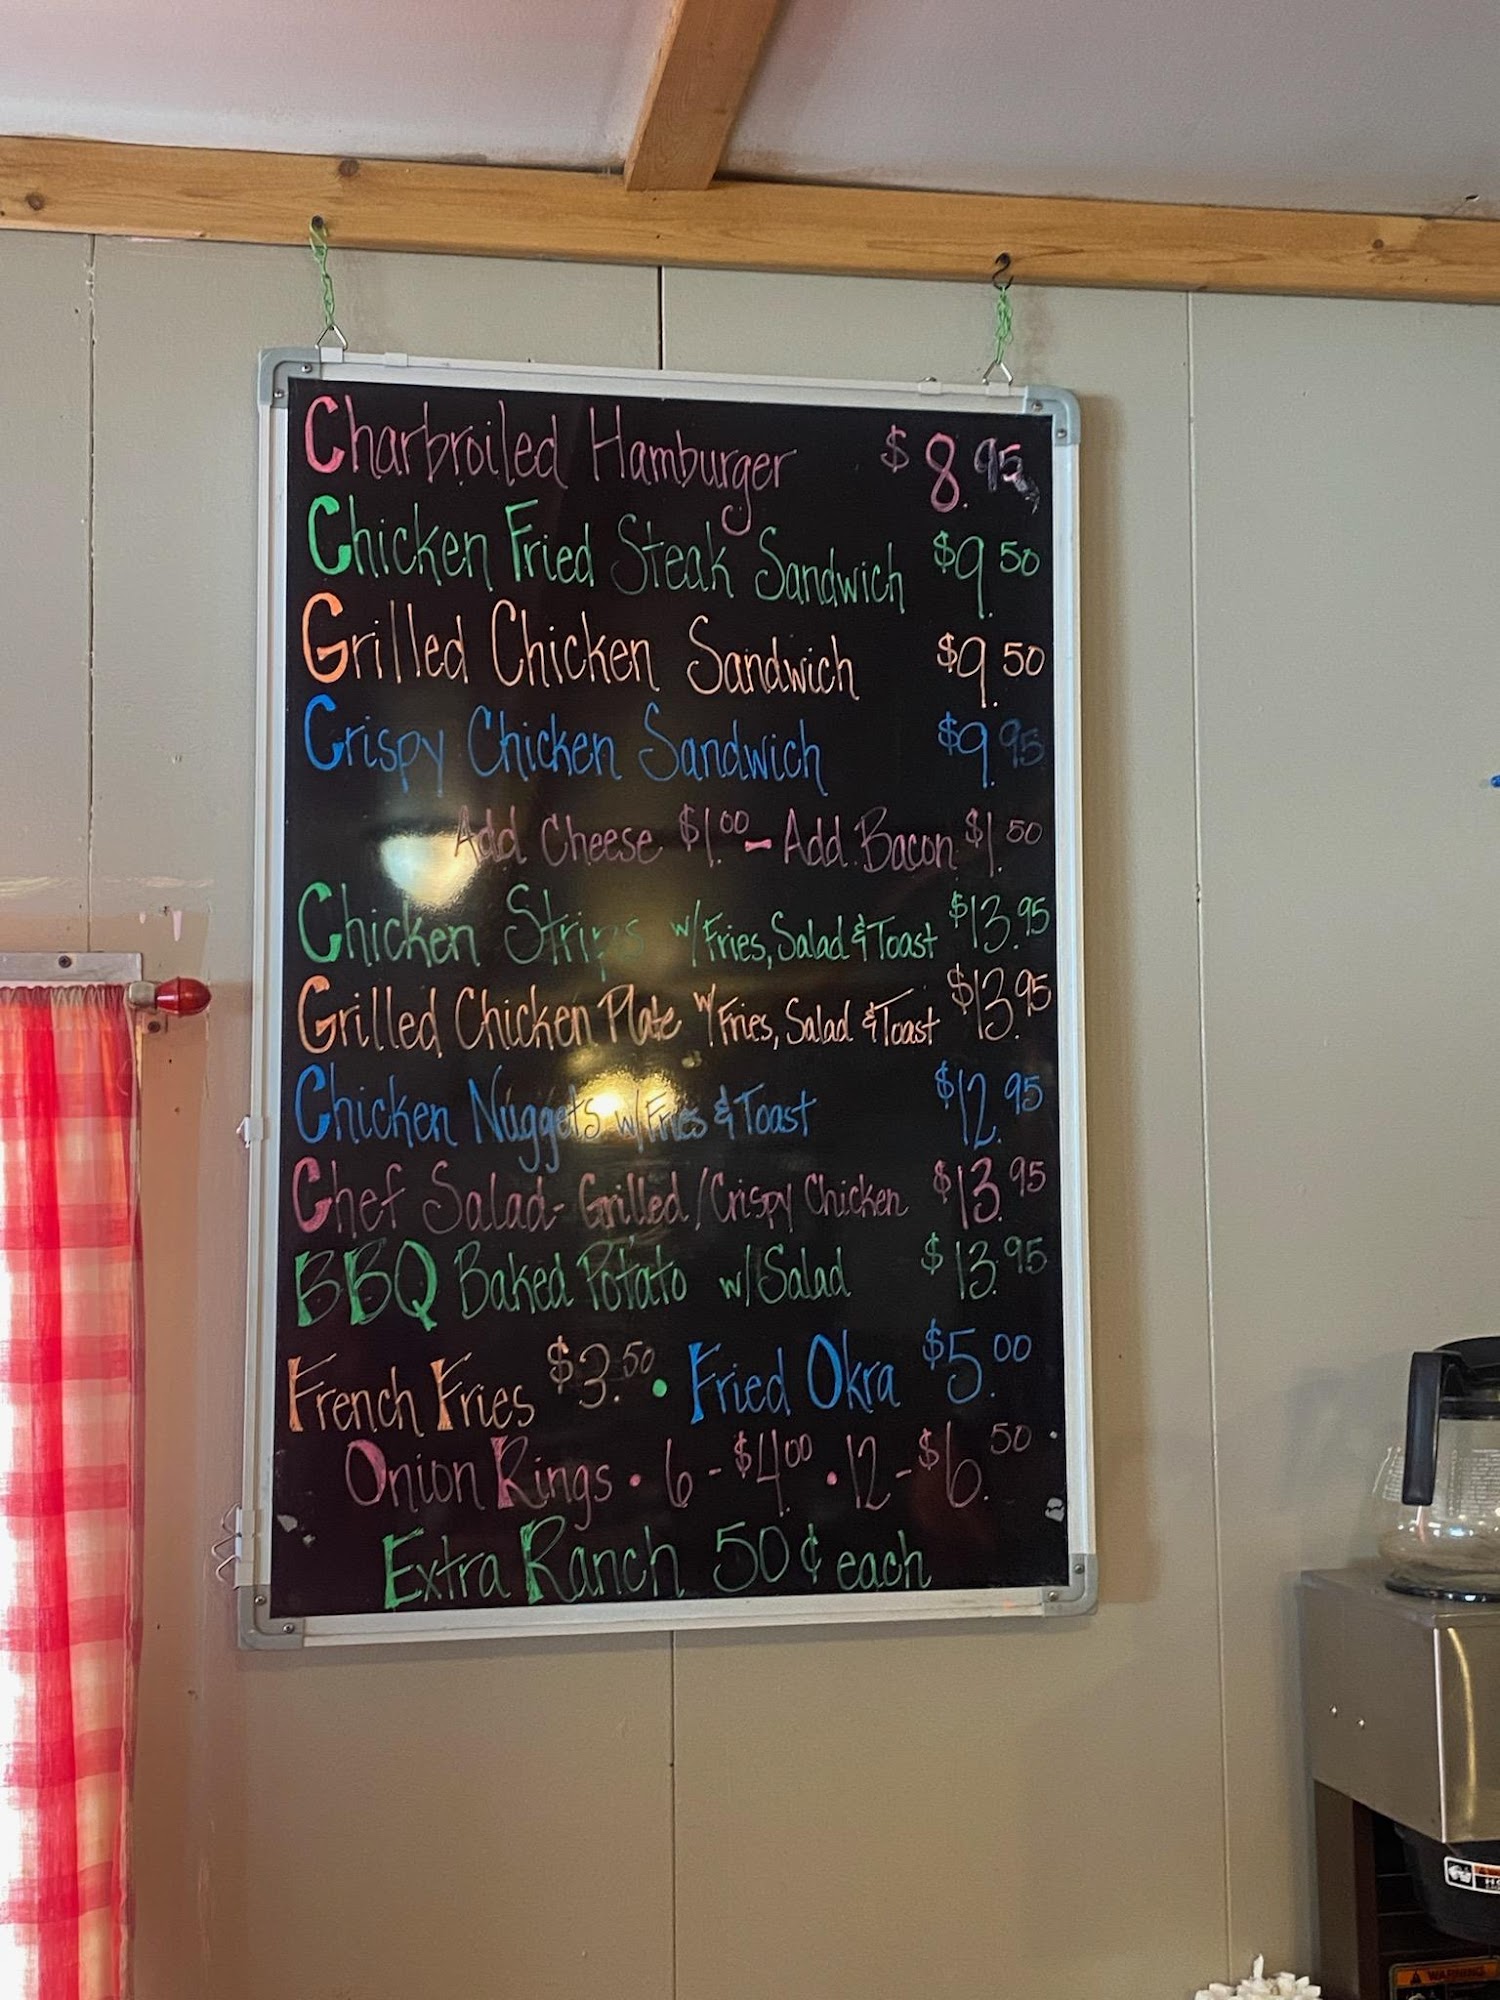 Charbroiled Hamburger $8.95
Chicken Fried Steak Sandwich $9.50
Grilled Chicken Sandwich $9.50
Crispy Chicken Sandwich $9.95
Add Cheese $1.00 - Add Bacon $1.50
Chicken Strips w/Fries, Salad & Toast $13.95
Grilled Chicken Plate w/Fries, Salad & Toast $13.95
Chicken Nuggets w/Fries & Toast $12.95
Chef Salad - Grilled/Crispy Chicken $13.95
BBQ Baked Potato w/Salad $13.95
French Fries $3.50 • Fried Okra $5.00
Onion Rings • 6 - $4.00 • 12 - $6.50
Extra Ranch 50¢ each
WARNING